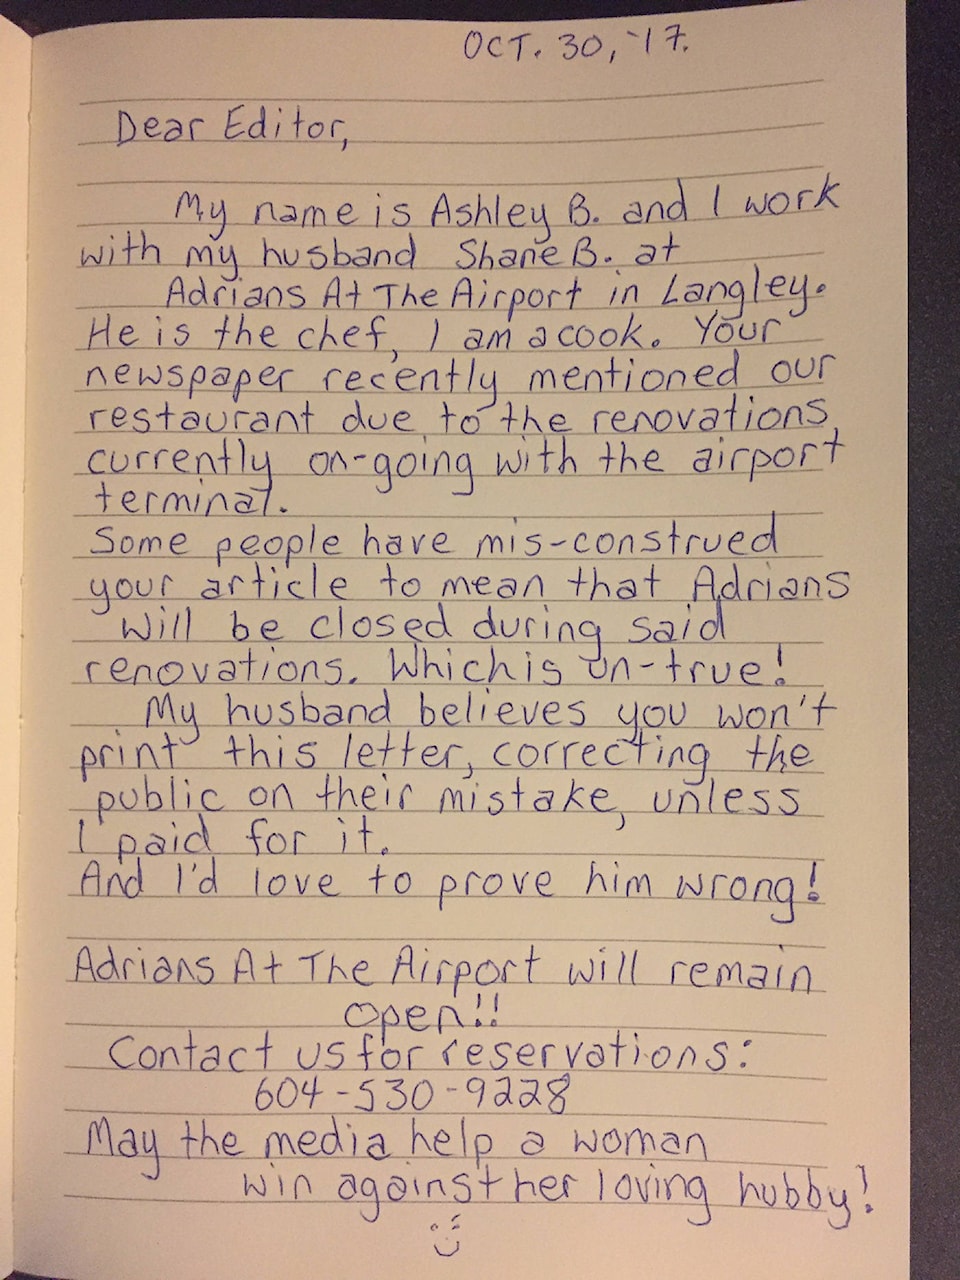 OCT. 30, '17.
Dear Editor,
My name is Ashley B. and I work
with my husband Shane B. at
Adrians At The Airport in Langley.
He is the chef, I am a cook. Your
newspaper recently mentioned our
restaurant due to the renovations,
currently on-going with the airport
terminal.
Some people have mis-construed
your article to mean that Adrians
will be closed during said
renovations. Which is un-true!
My husband believes you won't
print this letter, correcting the
public on their mistake, unless
I paid for it.
And I'd love to prove him wrong!
Adrians At The Airport will remain
open!!
Contact us for reservations:
604-530-9228
May the media help a woman
win against her loving hubby!